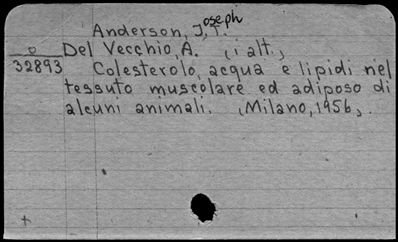 Anderson, J.T. oseph
o Del Vecchio, A. (i alt.,
32893 Colesterolo, acqua e lipidi nel
tessuto muscolare ed adiposo di
alcuni animali. (Milano, 1956,.
+